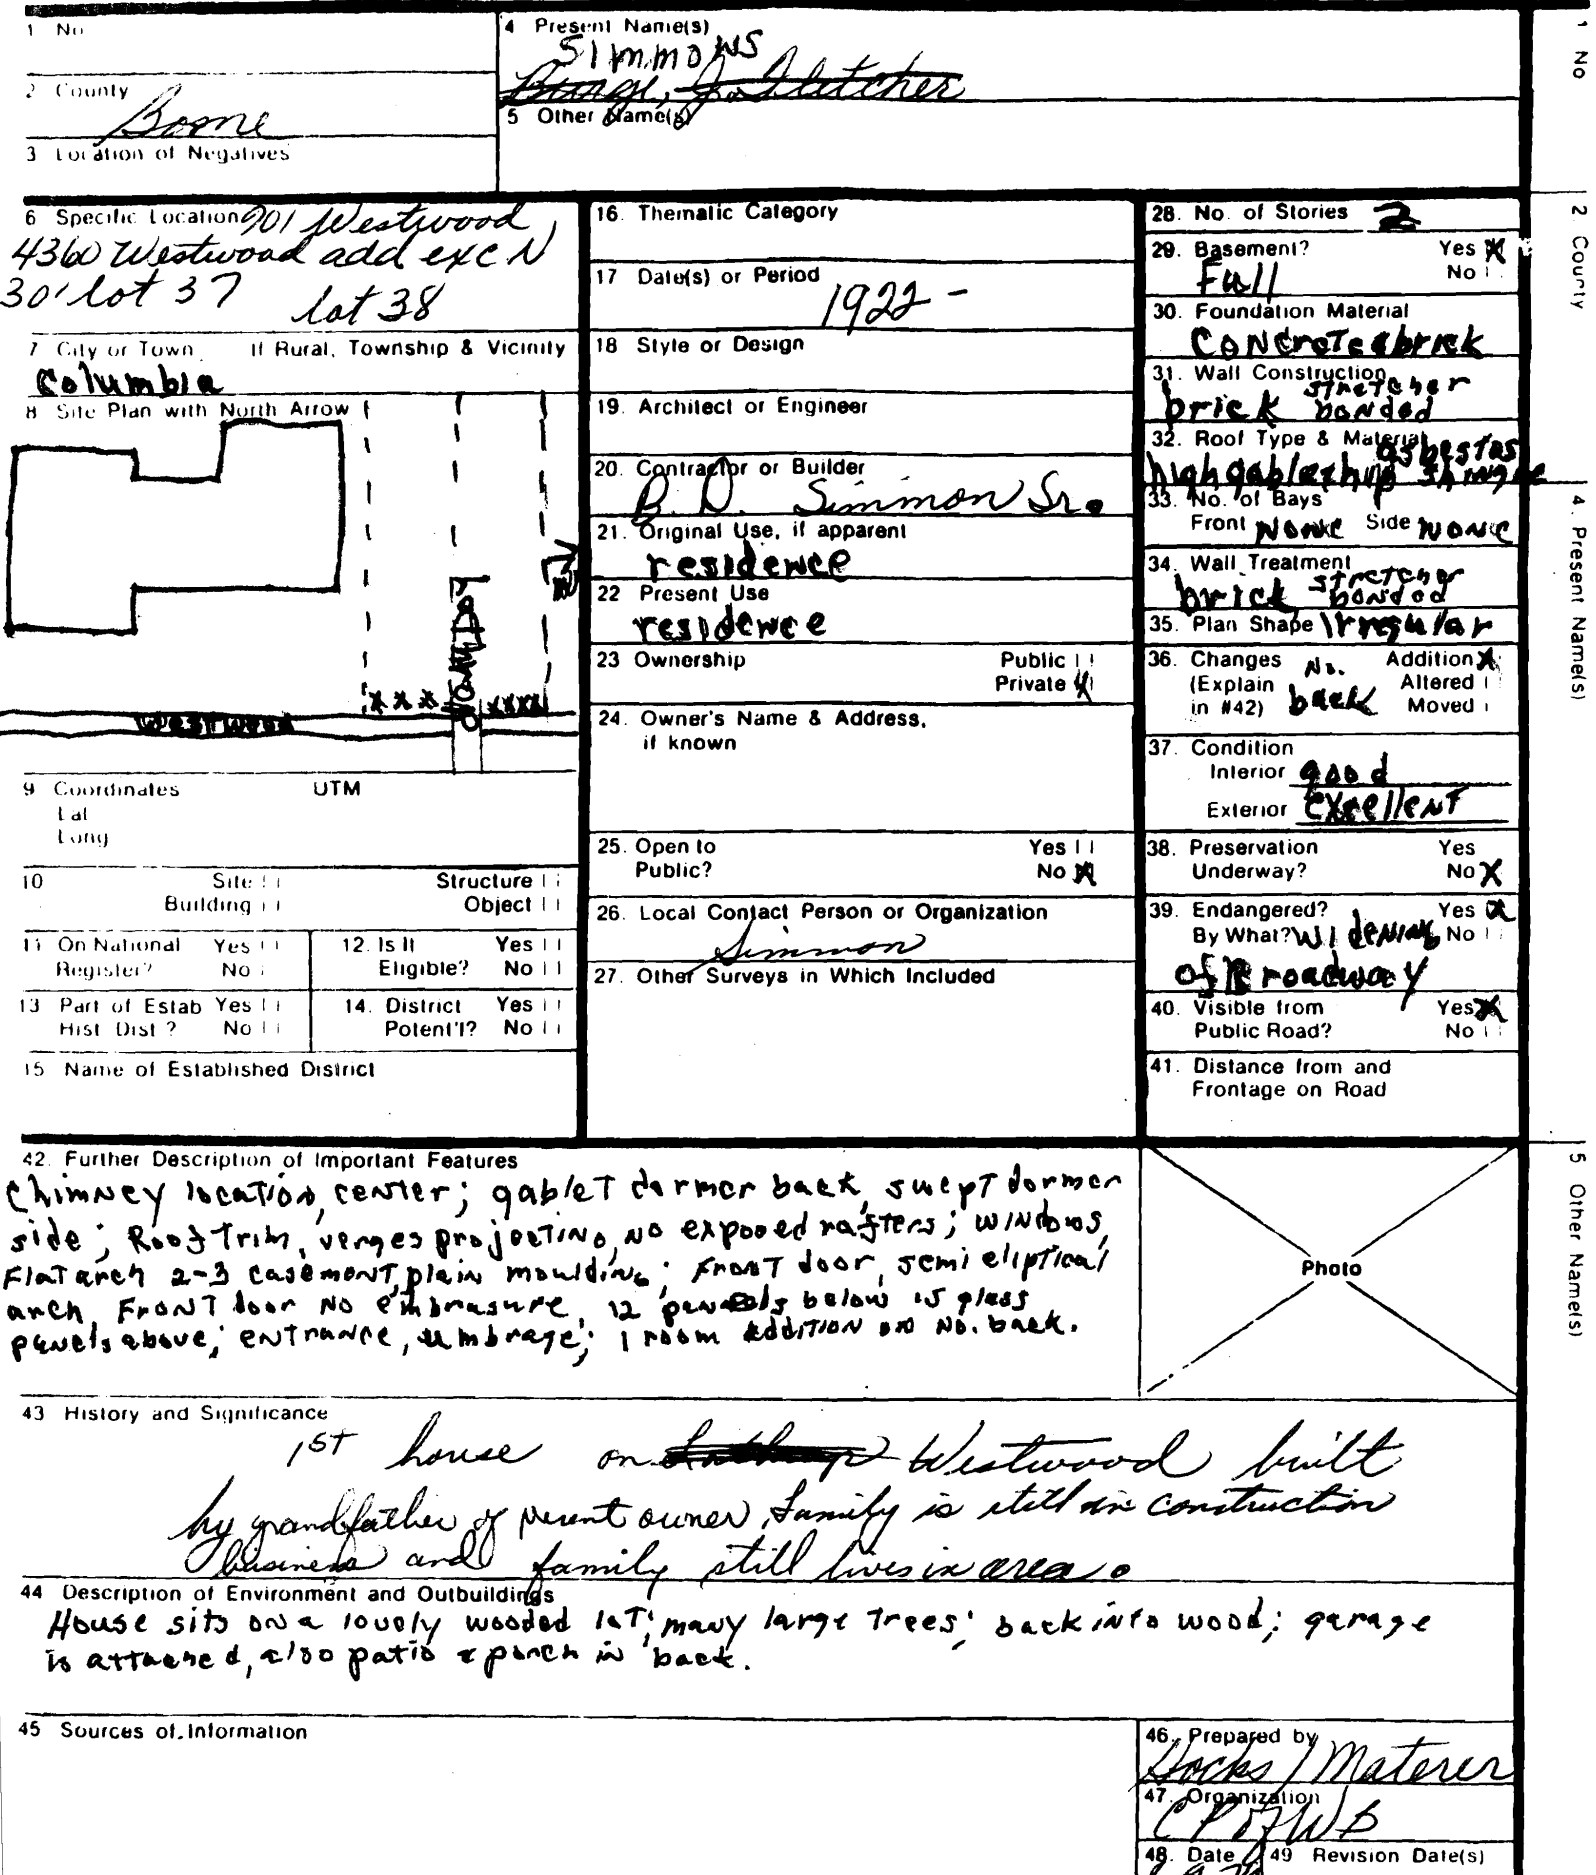 1 No
2 County
Boone
3 Location of Negatives
4 Present Name(s)
SIMMONS
Burge, J. Fletcher
5 Other Name(s)
6 Specific Location 901 Westwood,
4360 Westwood add exc N
30' lot 37 lot 38
7 City or Town If Rural, Township & Vicinity
Columbia
8 Site Plan with North Arrow
Westwood
9 Coordinates UTM
Lat
Long
10 Site Structure
Building Object
11 On National Register? Yes No
12. Is It Eligible? Yes No
13 Part of Estab Hist Dist? Yes No
14. District Potent'l? Yes No
15 Name of Established District
16. Thematic Category
17 Date(s) or Period
1922 -
18 Style or Design
19. Architect or Engineer
20. Contractor or Builder
B. D. Simmon Sr.
21. Original Use, if apparent
residence
22 Present Use
residence
23 Ownership Public
Private X
24. Owner's Name & Address,
if known
25. Open to Yes
Public? No X
26. Local Contact Person or Organization
Simmon
27. Other Surveys in Which Included
28. No. of Stories 2
29. Basement? Yes X
Full No
30. Foundation Material
Concrete & brick
31. Wall Construction
brick stretcher bonded
32. Roof Type & Material
high gable & hip asbestos shingle
33. No. of Bays
Front None Side None
34. Wall Treatment
brick stretcher bonded
35. Plan Shape Irregular
36. Changes No. Addition X
(Explain back Altered
in #42) Moved
37. Condition
Interior good
Exterior Excellent
38. Preservation Yes
Underway? No X
39. Endangered? Yes X
By What? Widening No
of Broadway
40. Visible from Yes X
Public Road? No
41. Distance from and
Frontage on Road
42. Further Description of Important Features
Chimney location, center; gablet dormer back, swept dormer
side; Roof trim, verges projecting, no exposed rafters; windows,
Flat arch 2-3 casement, plain moulding; Front door, semi eliptical
arch, Front door no embrasure, 12 panels below 15 glass
panels above; entrance, umbrage; 1 room addition on No. back.
Photo
43 History and Significance
1ST house on Westwood built
by grandfather of present owner, Family is still in construction
business and family still lives in area.
44 Description of Environment and Outbuildings
House sits on a lovely wooded lot; many large trees; back into wood; garage
is attached, also patio & porch in back.
45 Sources of Information
46. Prepared by
Hocks / Materer
47. Organization
48. Date 49 Revision Date(s)
1 No
2 County
4. Present Name(s)
5 Other Name(s)